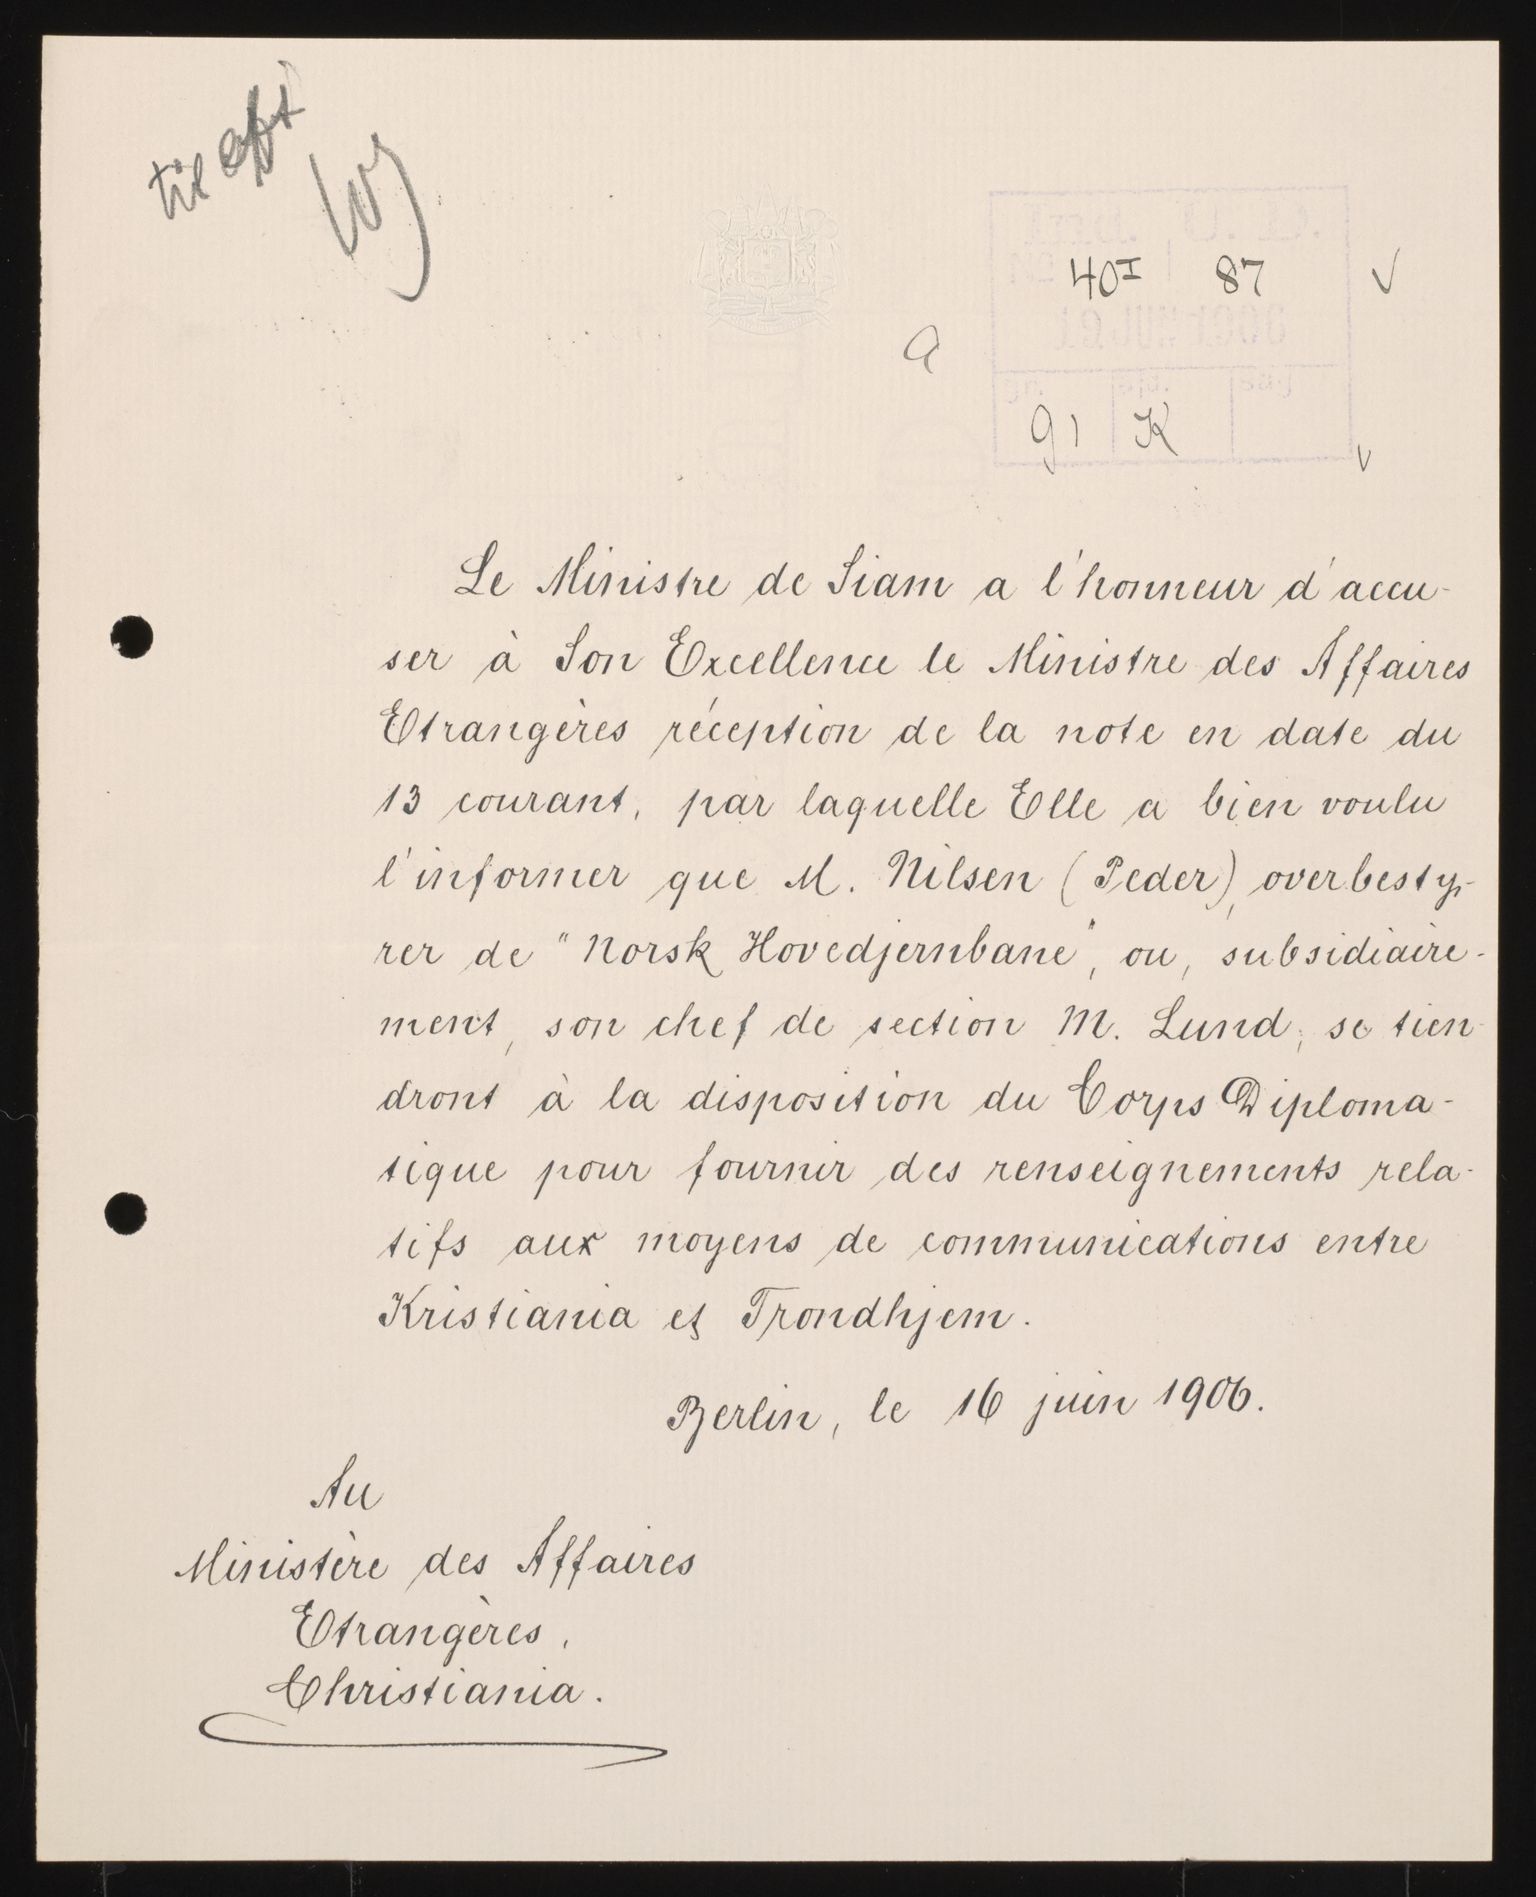 til
40I 87 V
a
91 K V
Le Ministre de Siam a l'honneur d'accu-
ser à Son Excellence le Ministre des Affaires
Etrangères réception de la note en date du
13 courant, par laquelle Elle a bien voulu
l'informer que M. Nilsen (Peder), overbesty-
rer de "Norsk Hovedjernbane", ou, subsidiaire-
ment, son chef de section M. Lund, se tien-
dront à la disposition du Corps Diploma-
tique pour fournir des renseignements rela-
tifs aux moyens de communications entre
Kristiania et Trondhjem.
Berlin, le 16 juin 1906.
Au
Ministère des Affaires
Etrangères,
Christiania.